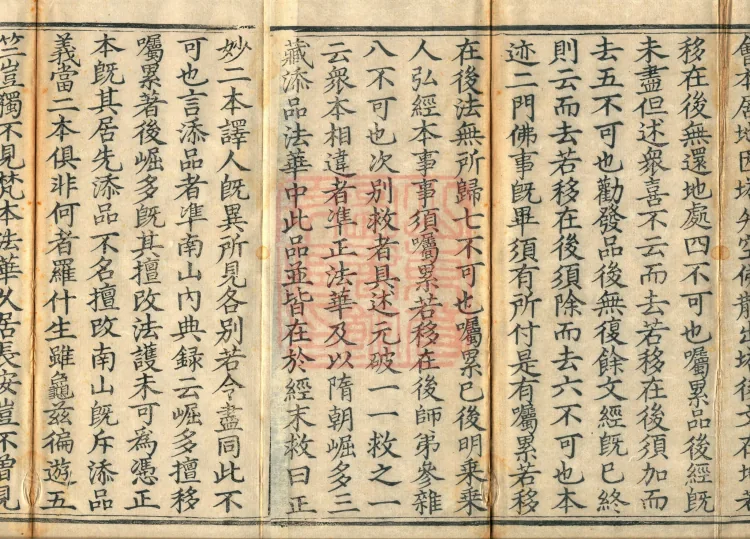 移在後無還地處四不可也囑累品後經旣
未盡但述衆喜不云而去若移在後須加而
去五不可也勸發品後無復餘文經旣已終
則云而去若移在後須除而去六不可也本
迹二門佛事旣畢須有所付是有囑累若移
在後法無所歸七不可也囑累已後明乘乘
人弘經本事事須囑累若移在後師弟參雜
八不可也次別救者具述元破一一救之一
云衆本相違者準正法華及以隋朝崛多三
藏添品法華中此品並皆在於經末救曰正
妙二本譯人旣異所見各別若令盡同此不
可也言添品者準南山內典録云崛多擅移
囑累著後崛多旣其擅改法護未可為憑正
本旣其居先添品不名擅改南山旣斥添品
義當二本俱非何者羅什生雖龜茲徧遊五
竺豈獨不見梵本法華久居長安豈不曾見